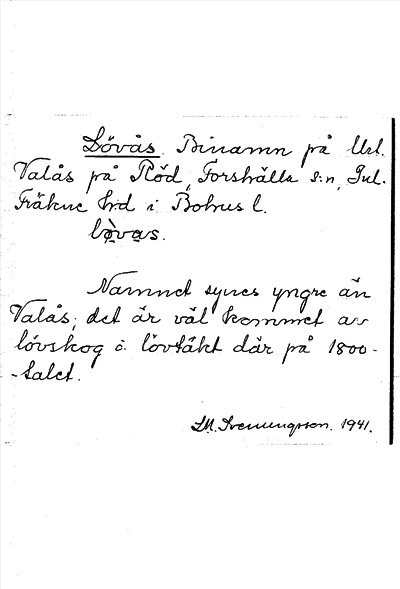 Lövås. Binamn på Utl.
Valås på Röd, Forshälla s:n, Inl.
Fräkne hd i Bohus l.
lövas.
Namnet synes yngre än
Valås; det är väl kommet av
lövskog o. lövtäkt där på 1800-
-talet.
S.M. Svenungsson. 1941.